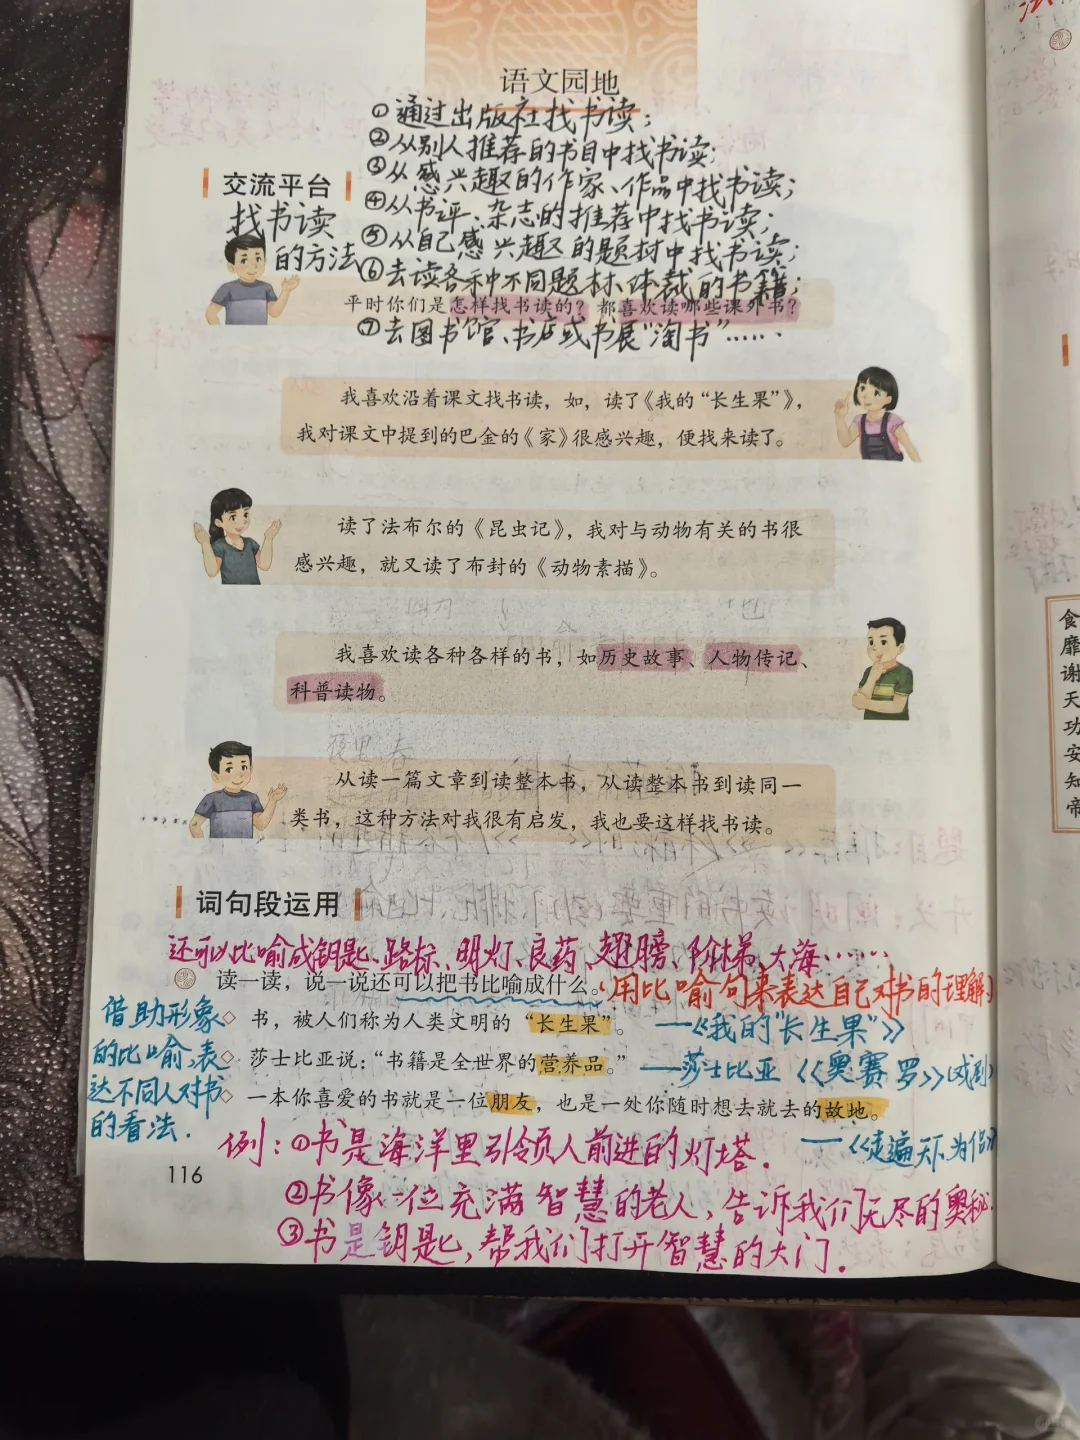 语文园地
①通过出版社找书读；
②从别人推荐的书目中找书读；
③从感兴趣的作家、作品中找书读；
④从书评、杂志的推荐中找书读；
⑤从自己感兴趣的题材中找书读；
⑥去读各种不同题材、体裁的书籍；
交流平台
找书读
的方法
平时你们是怎样找书读的？都喜欢读哪些课外书？
⑦去图书馆、书店或书展“淘书”……
我喜欢沿着课文找书读，如，读了《我的“长生果”》，
我对课文中提到的巴金的《家》很感兴趣，便找来读了。
读了法布尔的《昆虫记》，我对与动物有关的书很
感兴趣，就又读了布封的《动物素描》。
我喜欢读各种各样的书，如历史故事、人物传记、
科普读物。
从读一篇文章到读整本书，从读整本书到读同一
类书，这种方法对我很有启发，我也要这样找书读。
词句段运用
还可以比喻成钥匙、路标、明灯、良药、翅膀、阶梯、大海……
读一读，说一说还可以把书比喻成什么。
（用比喻句来表达自己对书的理解）
借助形象
的比喻，表
达不同人对书
的看法．
书，被人们称为人类文明的“长生果”。
——《我的“长生果”》
莎士比亚说：“书籍是全世界的营养品。”
——莎士比亚《奥赛罗》（戏剧）
一本你喜爱的书就是一位朋友，也是一处你随时想去就去的故地。
——《走遍天下，为侣》
例：①书是海洋里引领人前进的灯塔．
②书像一位充满智慧的老人，告诉我们无尽的奥秘．
③书是钥匙，帮我们打开智慧的大门．
116
食
靡
谢
天
功
安
知
帝